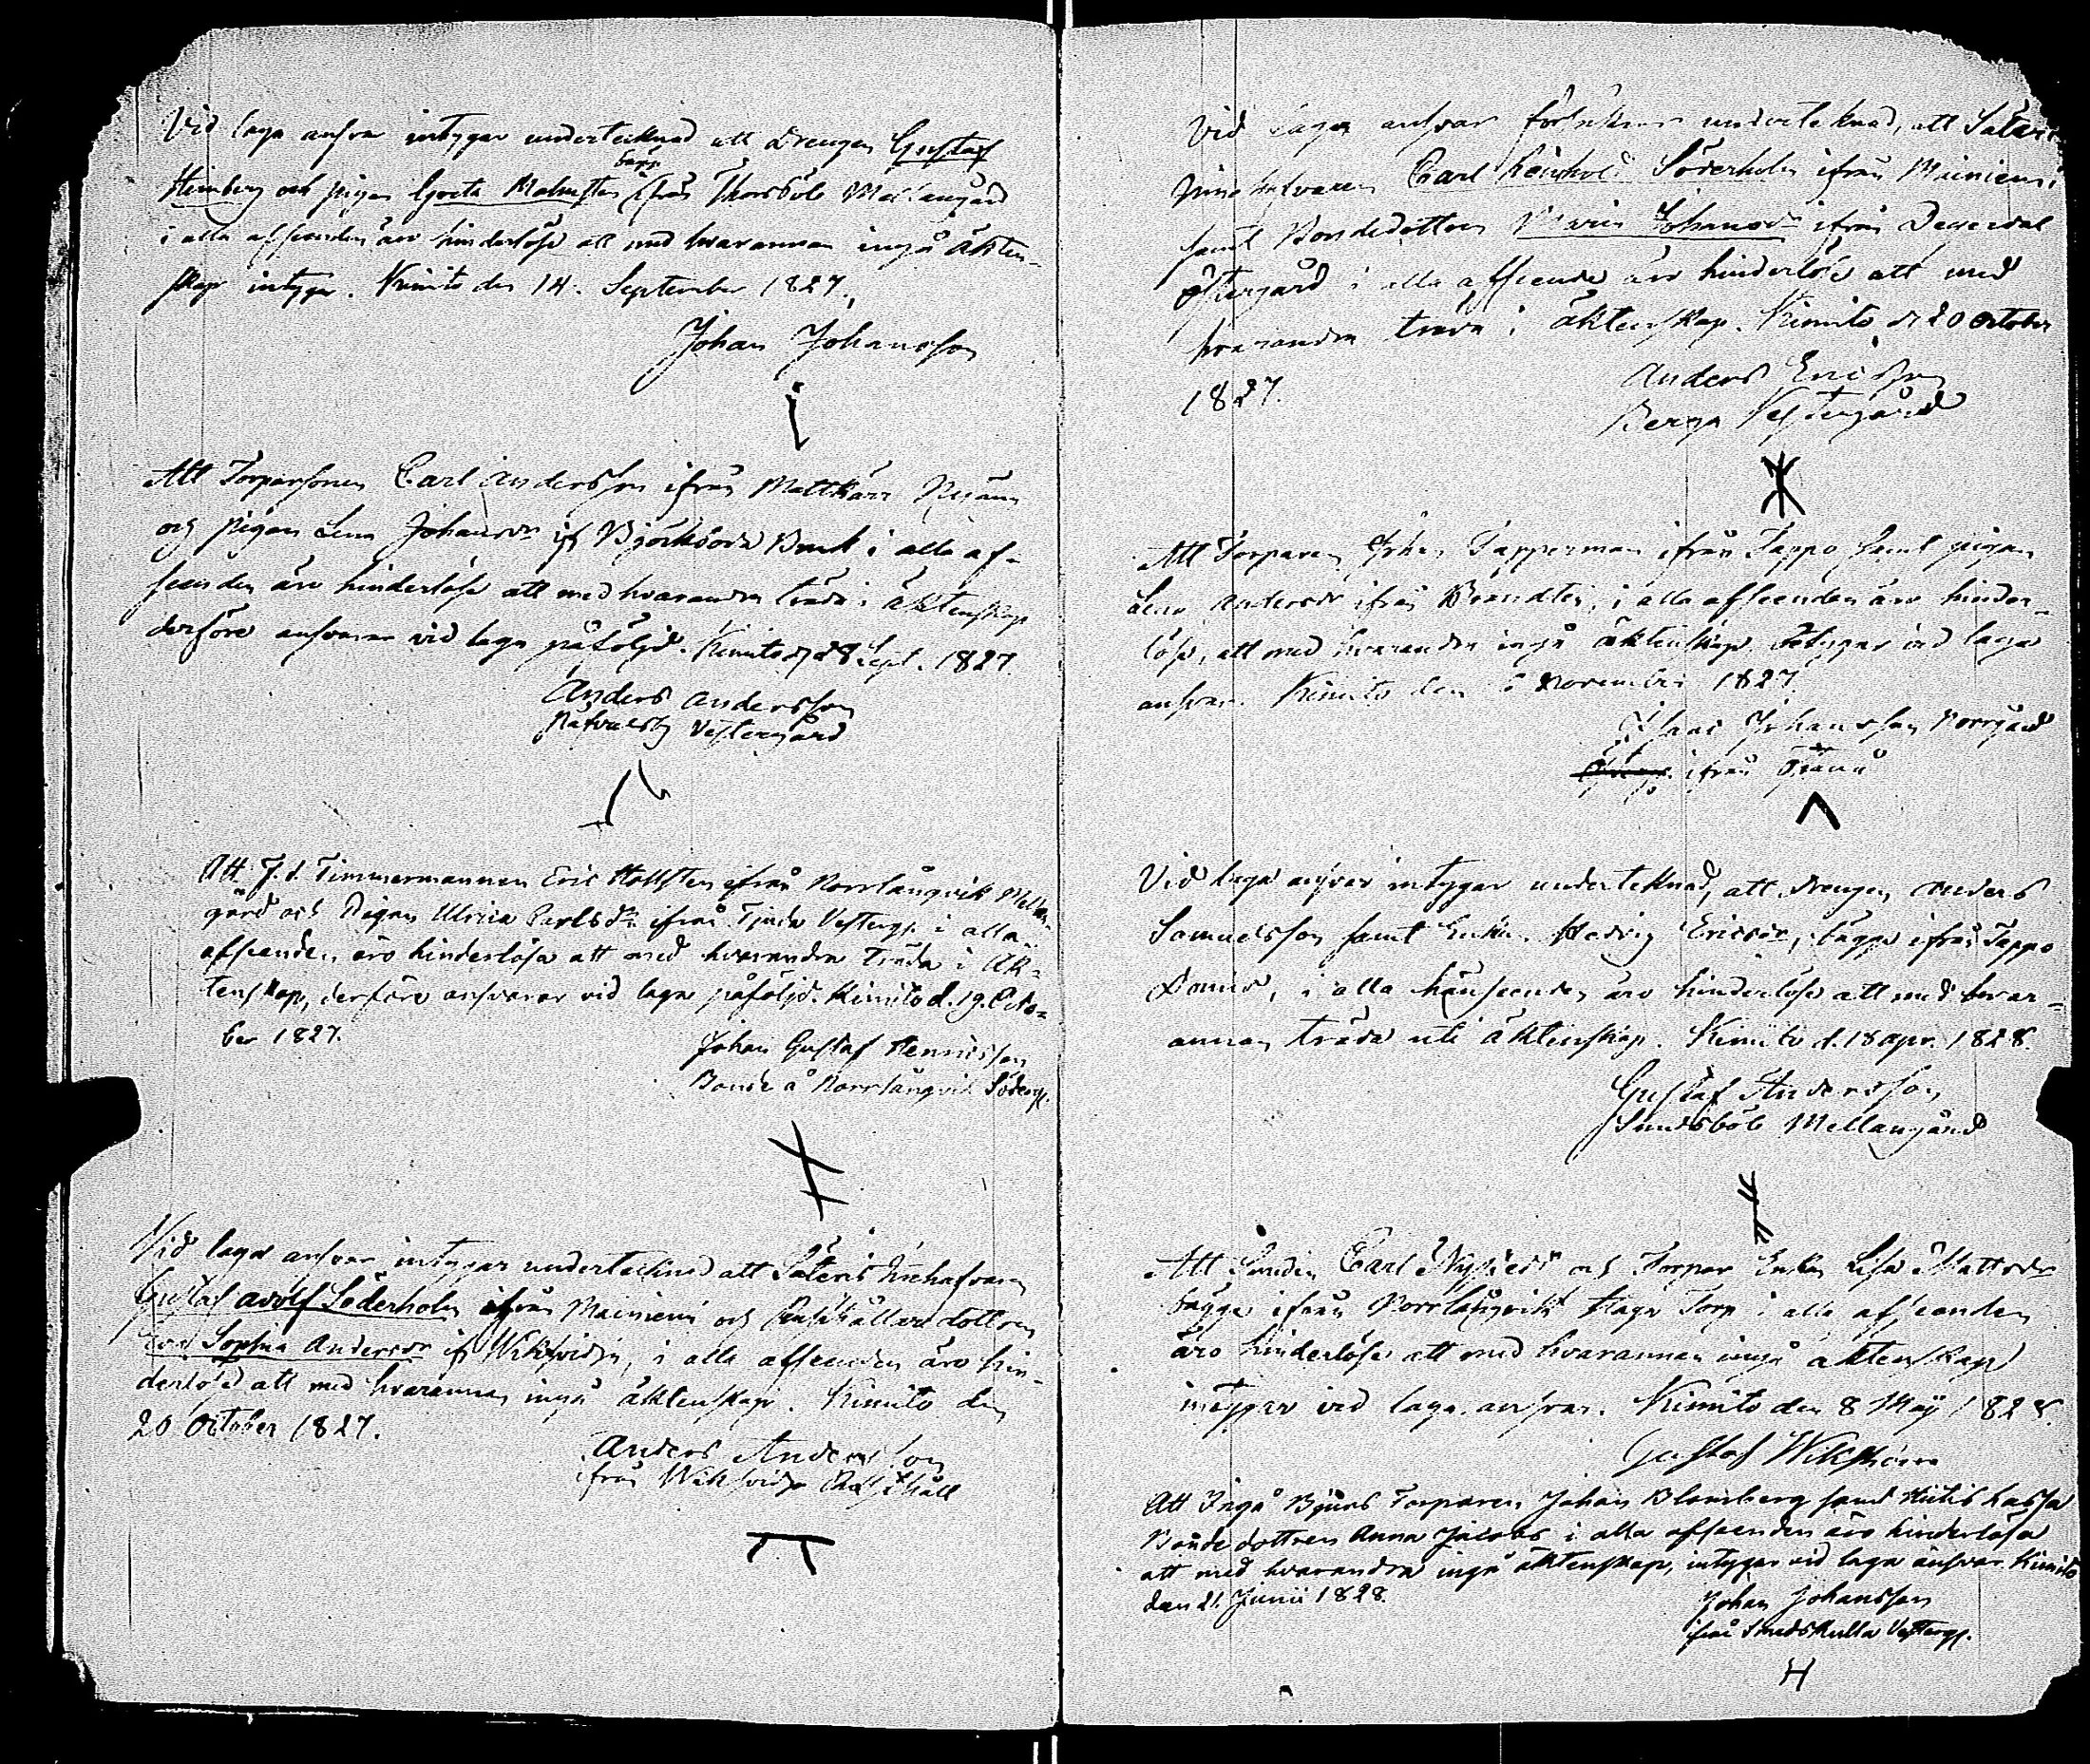 Vid laga ansvar intygar undertecknad att Drengen Gustaf
begge
Heinberg och pigan Greta Malmsten ifrån Thorsböle Mellangård
i alla afseenden äro hinderlöse att med hvarannan ingå äkten-
skap intygar. Kimito den 14. September 1827.
Johan Johansson
Att Torparsonen Carl Andersson ifrån Mattkärr
och pigan Lena Johansdr if Björkboda Bruk i alla af-
seenden äro hinderlöse att med hvarandra träda i äktenskap
derföre ansvarar vid laga påföljd. Kimito d. 28 Sept. 1827.
Anders Andersson
Vestergård
Att F.d. Timmermannen Eric Hallsten ifrån Norrlångvik Mellan-
gård och Pigan Ulrica Carlsdr ifrån Tjuda Vesterg. i alla
afseenden äro hinderlösa att med hvarandra träda i Äk-
tenskap, derföre ansvarar vid laga påföljd. Kimito d. 19. Octo-
ber 1827.
Johan Gustaf Henricsson
Bonde å Norrlångvik Söderg.
Vid laga ansvar intygar undertecknad att Säteri Innehafvaren
Gustaf Adolf Söderholm ifrån Mainiemi och dottren
Eva Sophia Andersdr if, i alla afseenden äro hin-
derlöse att med hvarannan ingå äktenskap. Kimito den
20 October 1827.
Anders Andersson
från
Vid laga ansvar försäkrar undertecknad, att Säteri
innehafvaren Carl Reinhold Söderholm ifrån Mainiemi
samt Bondedottren Maria Johansdr ifrån Degerdal
Östergård i alla afseende äro hinderlöse att med
hvarandra träda i äktenskap. Kimito d. 20 October
1827.
Anders Ericsson
Berga Vestergård
Att Torparen Johan Tapperman ifrån Tappo samt pigan
Lena Andersdr ifrån, i alla afseenden äro hinder-
löse, att med hvarandra ingå äktenskap, betygar vid laga
ansvar. Kimito den 6 November 1827
Isaac Johansson Norrgård
ifrån
Vid laga ansvar intygar undertecknad, att Drengen Anders
Samuelsson samt Enkan Hedvig Ericsdr, bägge ifrån Tappo
, i alla hänseenden äro hinderlöse att med hvar-
annan träda uti äktenskap. Kimito d. 18 apr. 1828.
Gustaf Andersson
Sundsböle Mellangård
Att Carl och Torpar Enkan Lisa Mattsdr
bägge ifrån Norrlångvik Haga Torp i alla afseenden
äro hinderlöse att med hvarannan ingå äktenskap
intygar vid laga ansvar. Kimito den 8 Maij 1828.
Gustaf Wikström
Att Ingå Byars Torparen Johan Blomberg samt Hitis Kassa
Bondedottren Anna Jacobs i alla afseenden äro hinderlösa
att med hvarandra ingå äktenskap, intygar vid laga ansvar. Kimito
den 21. Junii 1828.
Johan Johansson
ifrån Smedskulla Vesterg.
H